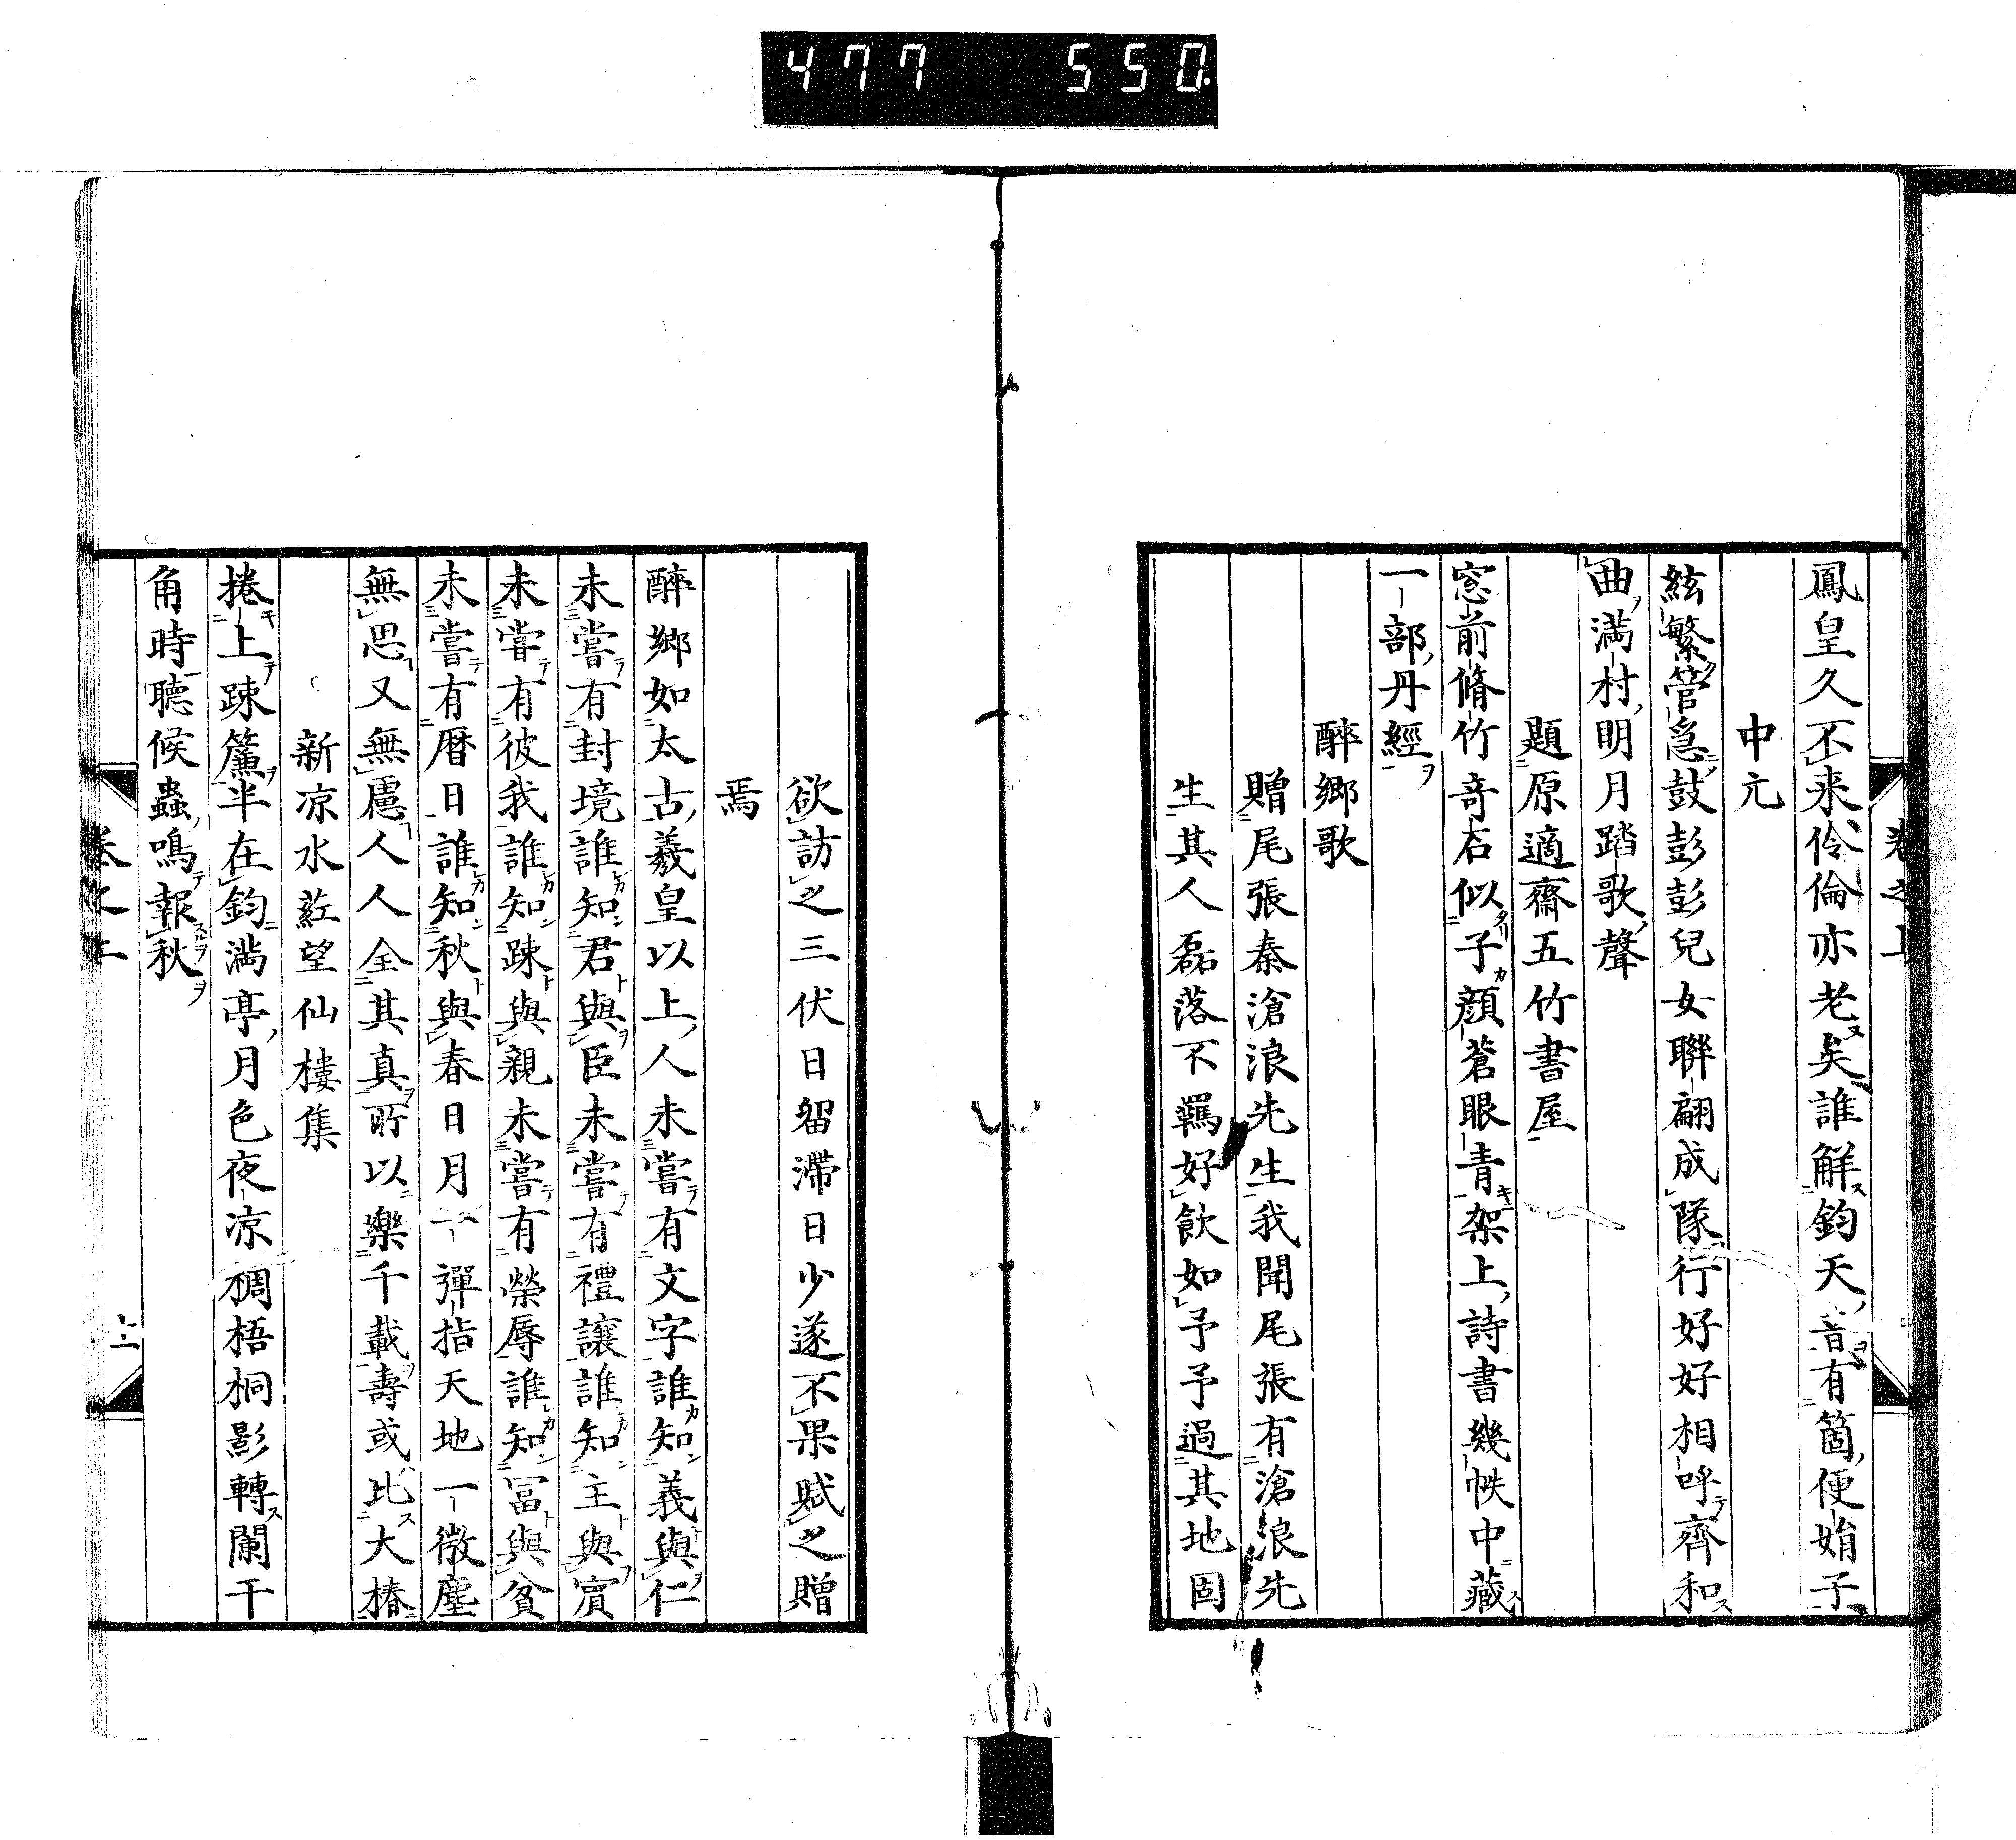 477 550
鳳皇久不来伶倫亦老矣誰解鈞天音有箇便娟子
中元
絃繁管急鼓彭彭兒女聯翩成隊行好好相呼齊和
曲満村明月踏歌聲
題原適齋五竹書屋
窓前脩竹奇石似子顔蒼眼青架上詩書幾帙中藏
一部丹經
醉郷歌
贈尾張秦滄浪先生我聞尾張有滄浪先
生其人磊落不羈好飲如予予過其地固
欲訪之三伏日留滯日少遂不果賦之贈
焉
醉郷如太古羲皇以上人未嘗有文字誰知義與仁
未嘗有封境誰知君與臣未嘗有禮讓誰知主與賓
未嘗有彼我誰知踈與親未嘗有榮辱誰知冨與貧
未嘗有暦日誰知秋與春日月一彈指天地一微塵
無思又無慮人人全其真所以樂千載壽或比大椿
新凉水荭望仙樓集
捲上踈簾半在鈎満亭月色夜凉稠梧桐影轉闌干
角時聽候蟲鳴報秋
卷之上